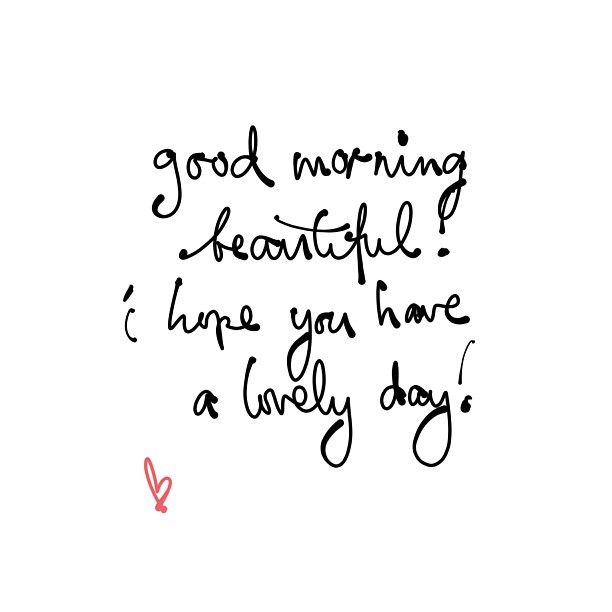 good morning
beautiful!
i hope you have
a lovely day!